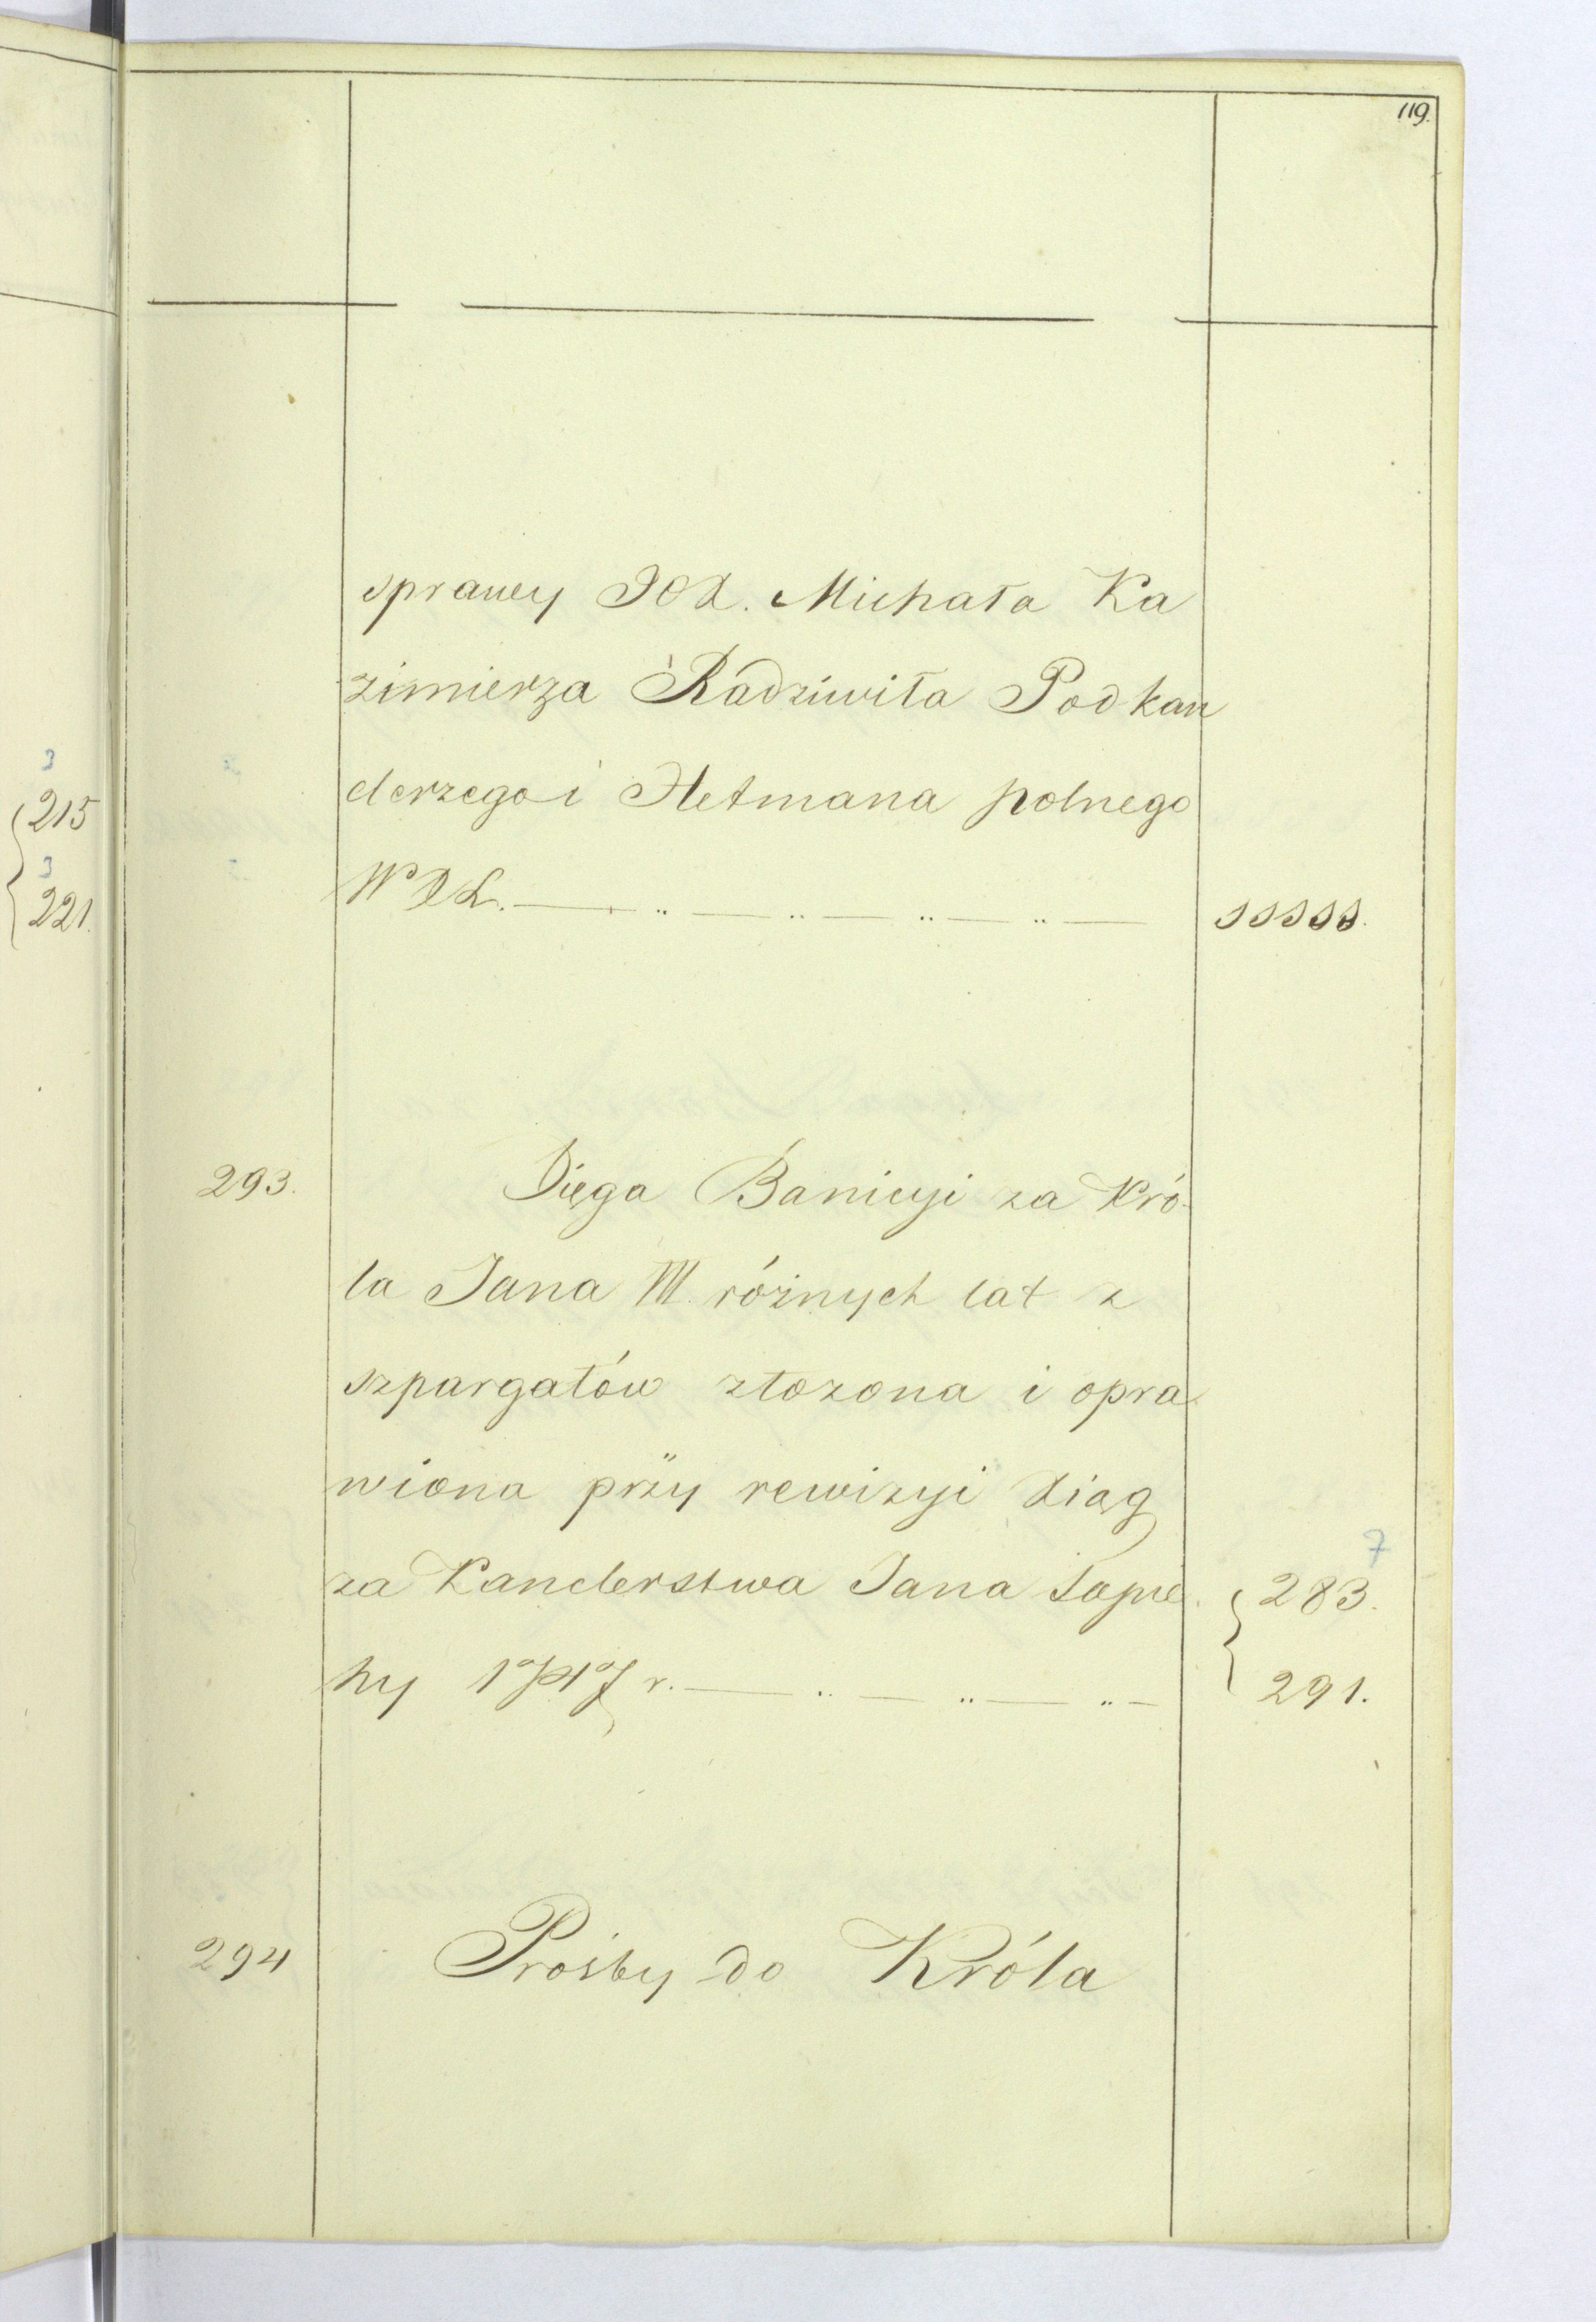 119.
sprawy JOX. Michała Ka
zimierza Radziwiła Podkan
clerzego i Hetmana polnego
W X L.
215
221.
293. Xięga Banicyi za Kró-
la Jana III różnych lat z
szpargałów złozona i opra
wiona przy rewizyi Xiąg
za Kanclerstwa Jana Sapie
hy 1747 r.
7
283.
291.
294 Prośby do Króla